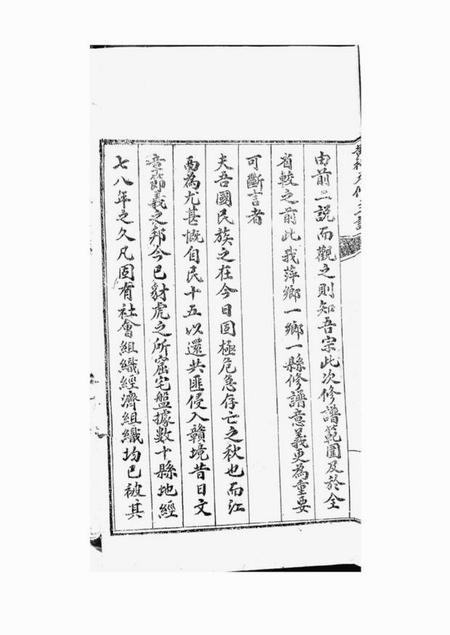 由前二說而觀之則知吾宗此次修譜範圍及於全
省較之前此我萍鄉一鄉一縣修譜意義更為重要
可斷言者
夫吾國民族之在今日固極危急存亡之秋也而江
西為尤甚慨自民十五以還共匪侵入贛境昔日文
章節義之邦今已豺虎之所窟宅盤據數十縣地經
七八年之久凡固有社會組織經濟組織均已被其